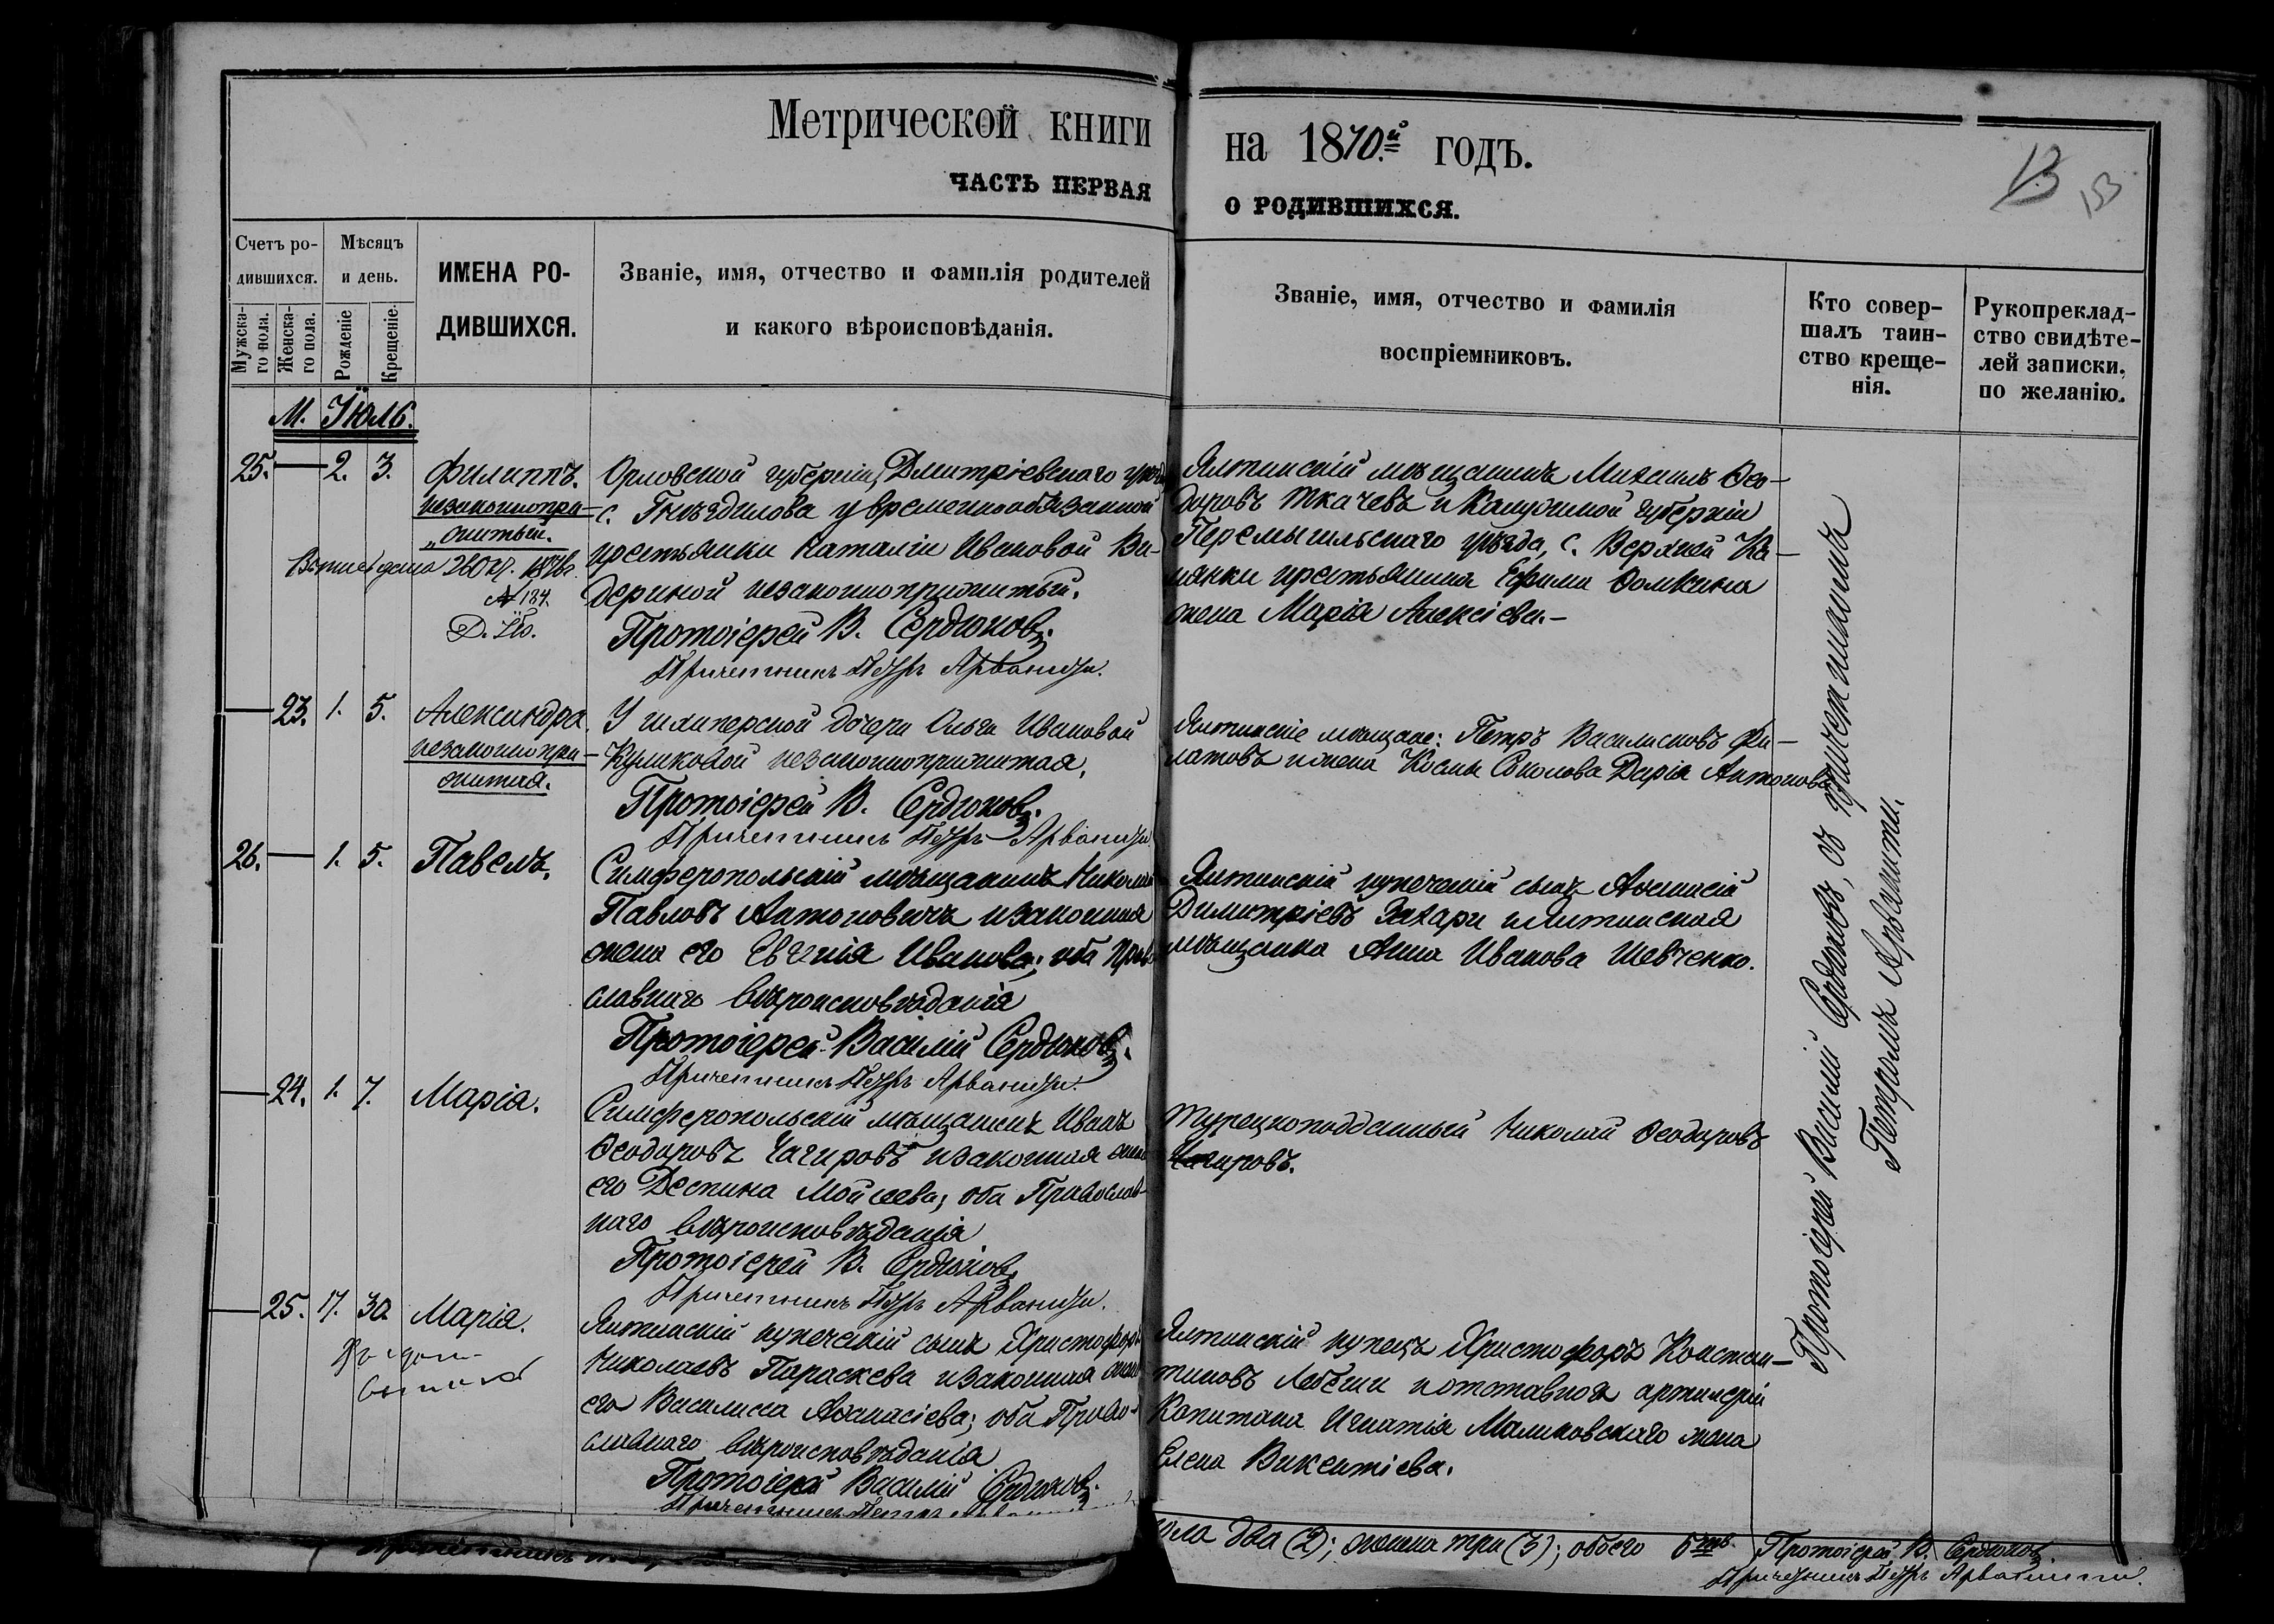 Метрической книги на 1870.й годъ.
ЧАСТЬ ПЕРВАЯ О РОДИВШИХСЯ.
13
153
Счетъ ро-
дившихся.
Мужска-
го пола.
Женска-
го пола.
Мѣсяцъ
и день.
Рожденіе
Крещеніе.
ИМЕНА РО-
ДИВШИХСЯ.
Званіе, имя, отчество и фамилія родителей
и какого вѣроисповѣданія.
Званіе, имя, отчество и фамилія
воспріемниковъ.
Кто совер-
шалъ таин-
ство креще-
нія.
Рукоприклад-
ство свидѣте-
лей записки.
по желанію.
М. Іюль.
25. — 2. 3.
Филиппъ.
незаконнопри-
житый.
№ 184.
Орловской губерніи, Дмитріевскаго уѣзда
с. Гнѣздилова у временнообязанной
крестьянки Наталіи Ивановой Ви-
дериной незаконноприжитый.
Протоіерей В. Сердюковъ.
Причетникъ Петръ Арванити.
Ялтинскій мѣщанинъ Михаилъ Ѳео-
доровъ Ткачевъ и Калужской губерніи
Перемышльскаго уѣзда, с. Верхней Ка-
мянки крестьянина Ефима Фомкина
жена Марія Алексіева.—
— 23. 1. 5.
Александра
незаконнопри-
житая.
У шкиперской дочери Ольги Ивановой
Куликовой незаконноприжитая.
Протоіерей В. Сердюковъ.
Причетникъ Петръ Арванити.
Ялтинскіе мѣщане: Петръ Василисковъ Фи-
латовъ и жена Космы Соколова Дарія Антонова
26. — 1. 5.
Павелъ.
Симферопольскій мѣщанинъ Николай
Павловъ Антоновичъ и законная
жена его Евгенія Иванова; оба право
славнаго вѣроисповѣданія
Протоіерей Василій Сердюковъ.
Причетникъ Петръ Арванити.
Ялтинскій купеческій сынъ Аѳанасій
Димитріевъ Захари и Ялтинская
мѣщанка Анна Иванова Шевченко.
— 24. 1. 7.
Марія.
Симферопольскій мѣщанинъ Иванъ
Ѳеодоровъ Чагировъ и законная жена
его Деспина Мойсеева; оба Православ-
наго вѣроисповѣданія
Протоіерей В. Сердюковъ
Причетникъ Петръ Арванити.
Турецкоподданный Николай Ѳеодоровъ
Чагировъ.
— 25. 17. 30
Марія.
Ялтинскій купеческій сынъ Христофоръ
Николаевъ Параскева и законная жена
его Василиса Аѳанасіева; оба Право-
славнаго вѣроисповѣданія
Протоіерей Василій Сердюковъ.
Причетникъ Петръ
Ялтинскій купецъ Христофоръ Констан-
тиновъ и отставной артилеріи
Капитана Игнатія Малиновскаго жена
Елена Викентіева.
Протоіерей Василій Сердюковъ, съ причетникомъ
Петромъ Арванити.
пола два (2); женска три (3); обоего 5
Протоіерей В. Сердюковъ.
Причетникъ Петръ Арванити.